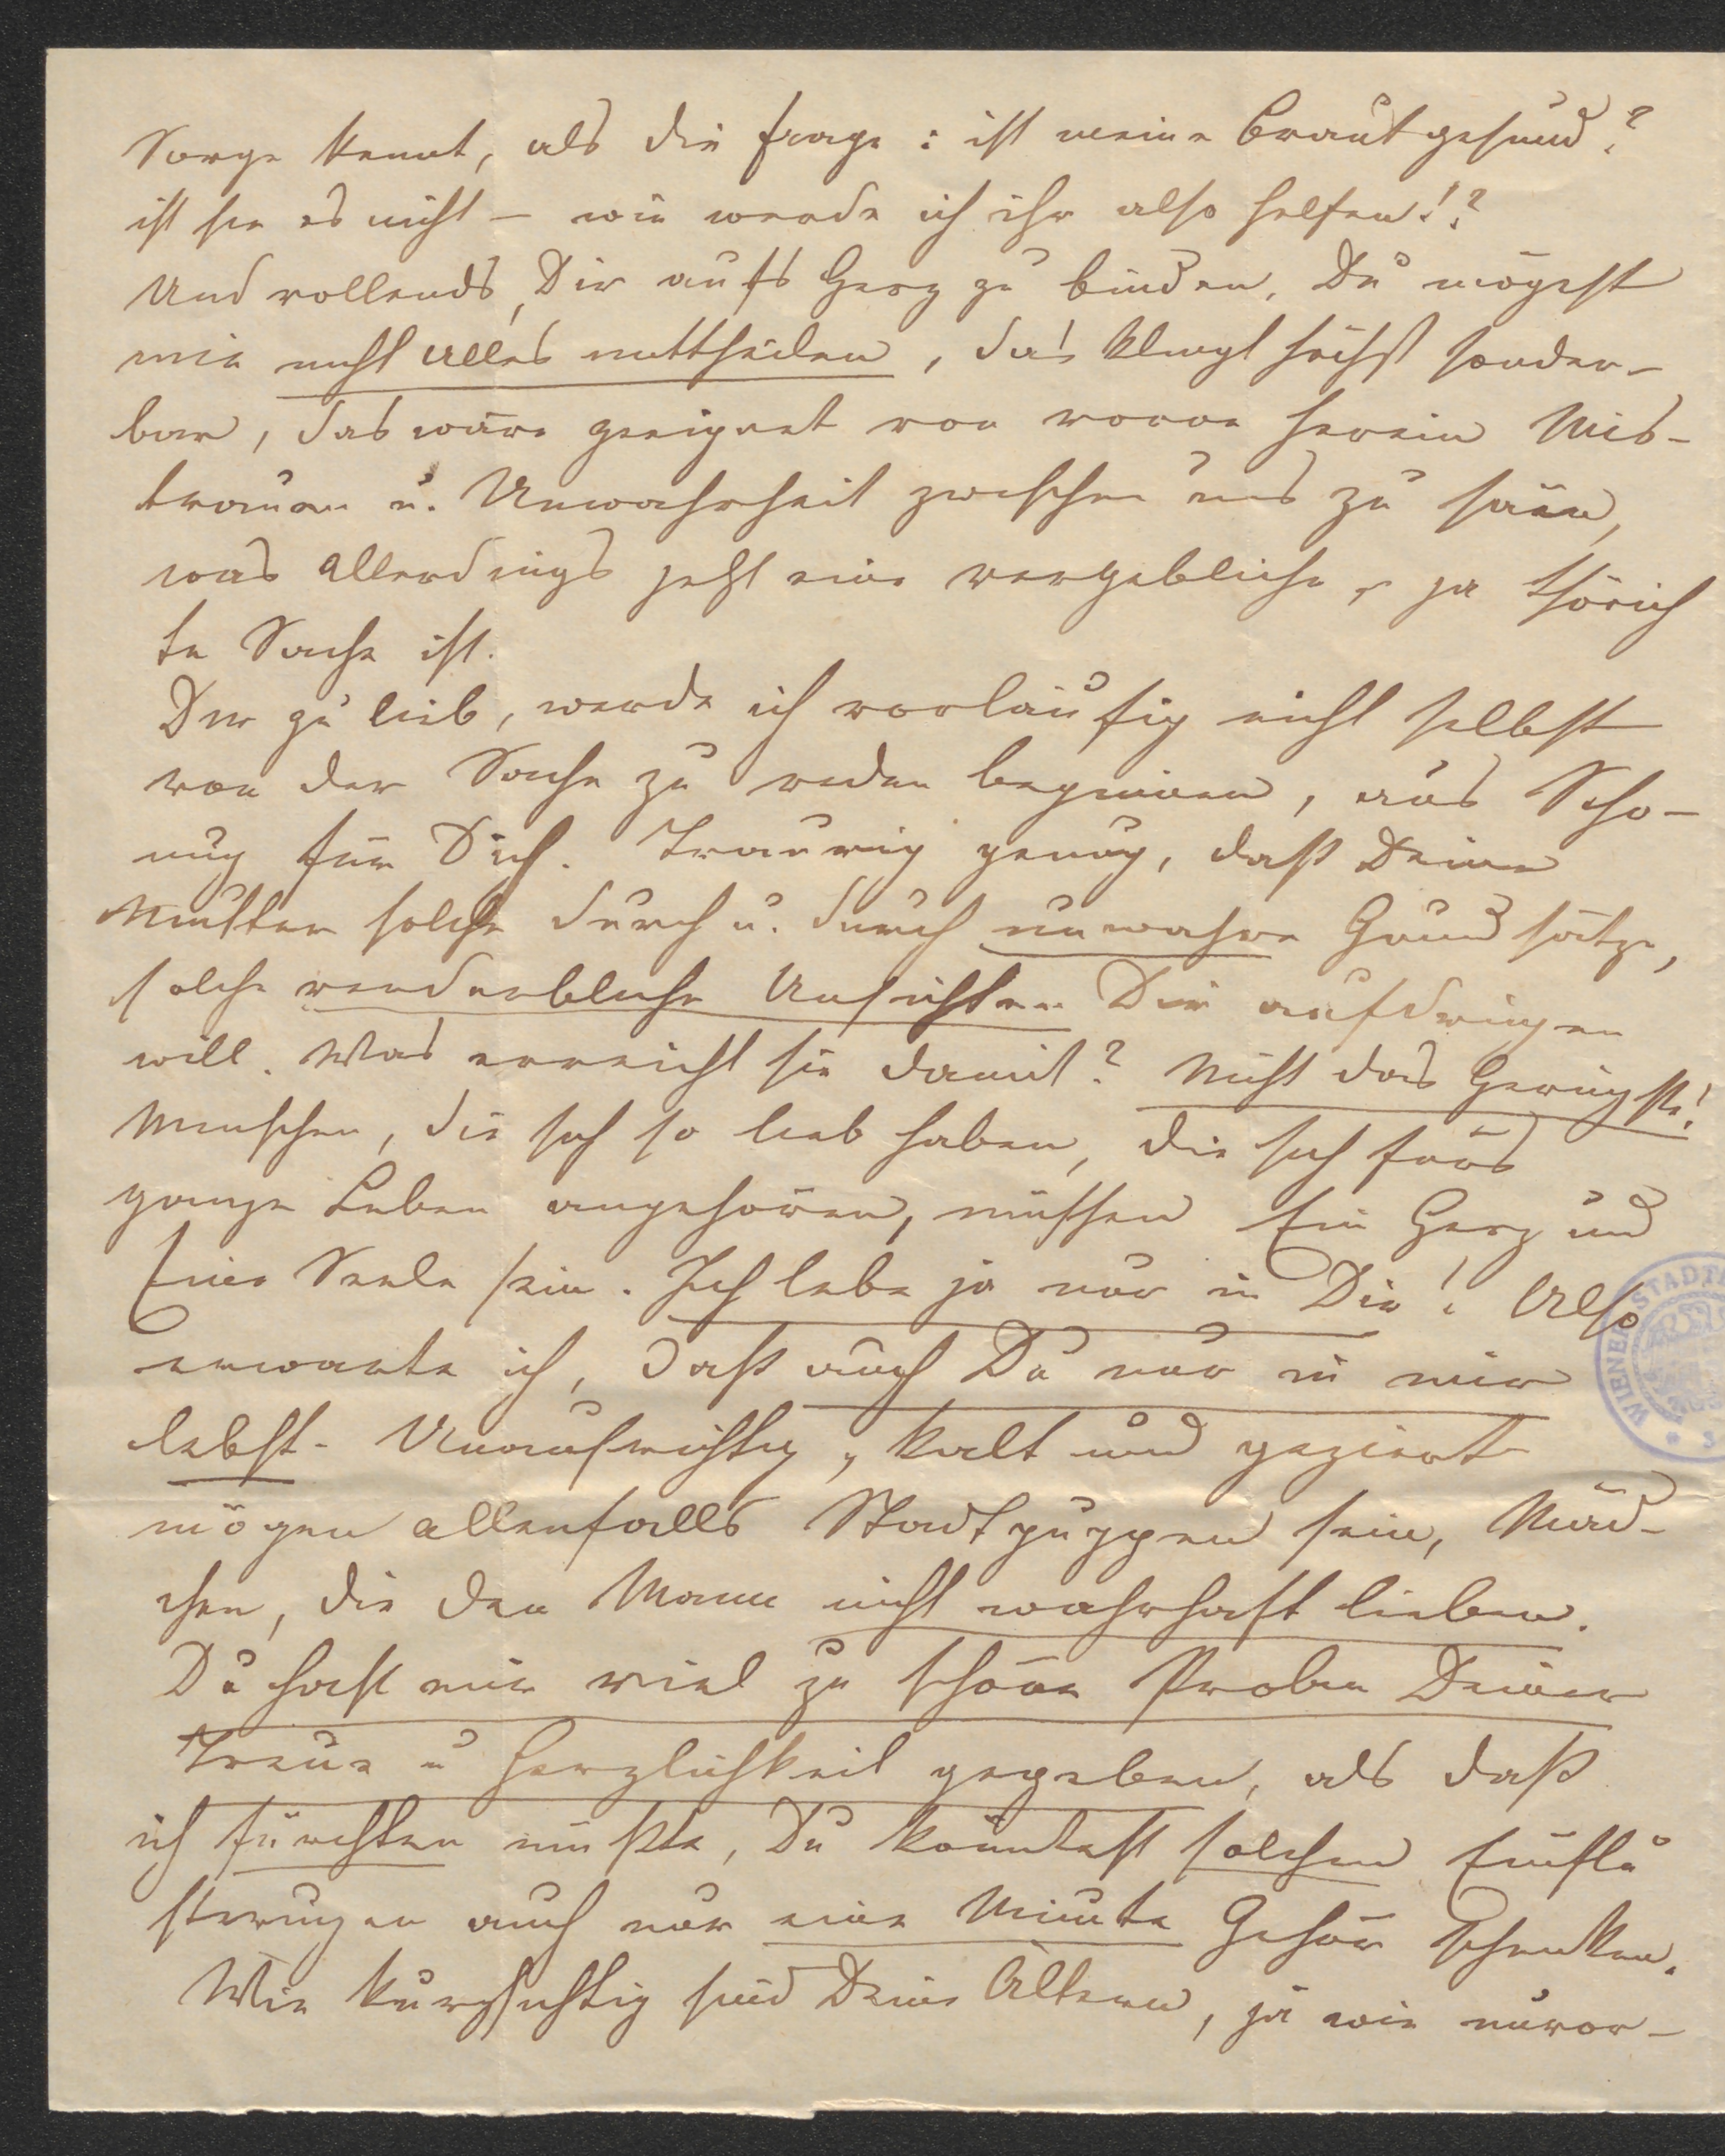 Sorge kennt, als die Frage: ist meine Braut gesund?
ist sie es nicht – wie werde ich ihr also helfen!?
Und vollends, Dir aufs Herz zu binden, Du mögest
mir nicht alles mittheilen, das klingt höchst sonder-
bar, das wäre geeignet von vorne herein Mis-
trauen u. Unwahrheit zwischen uns zu säen,
was allerdings jetzt eine vergebliche, ja thörich
te Sache ist.
Dir zu lieb, werde ich vorläufig nicht selbst
von der Sache zu reden beginnen, aus Scho-
nung für Dich. Traurig genug, daß Deine
Mutter solche durch u. durch unwahre Grundsätze,
solche verderbliche Ansichten Dir aufdringen
will. Was erreicht sie damit? Nicht das Geringste!
Menschen, die sich so lieb haben, die sich fürs
ganze Leben angehören, müssen Ein Herz und
Eine Seele sein. Ich lebe ja nur in Dir! Also
erwarte ich, daß auch Du nur in mir
lebst. Unaufrichtig, kalt und geziert
mögen allenfalls Stadtpuppen sein, Mäd-
chen, die den Mann nicht wahrhaft lieben.
Du hast mir viel zu schöne Proben Deiner
Treue u Herzlichkeit gegeben, als daß
ich fürchten müßte, Du könntest solchen Einflü
sterungen auch nur eine Minute Gehör schenken.
Wie kurzsichtig sind Deine Ältern, ja wie unvor-
WIENER STADT